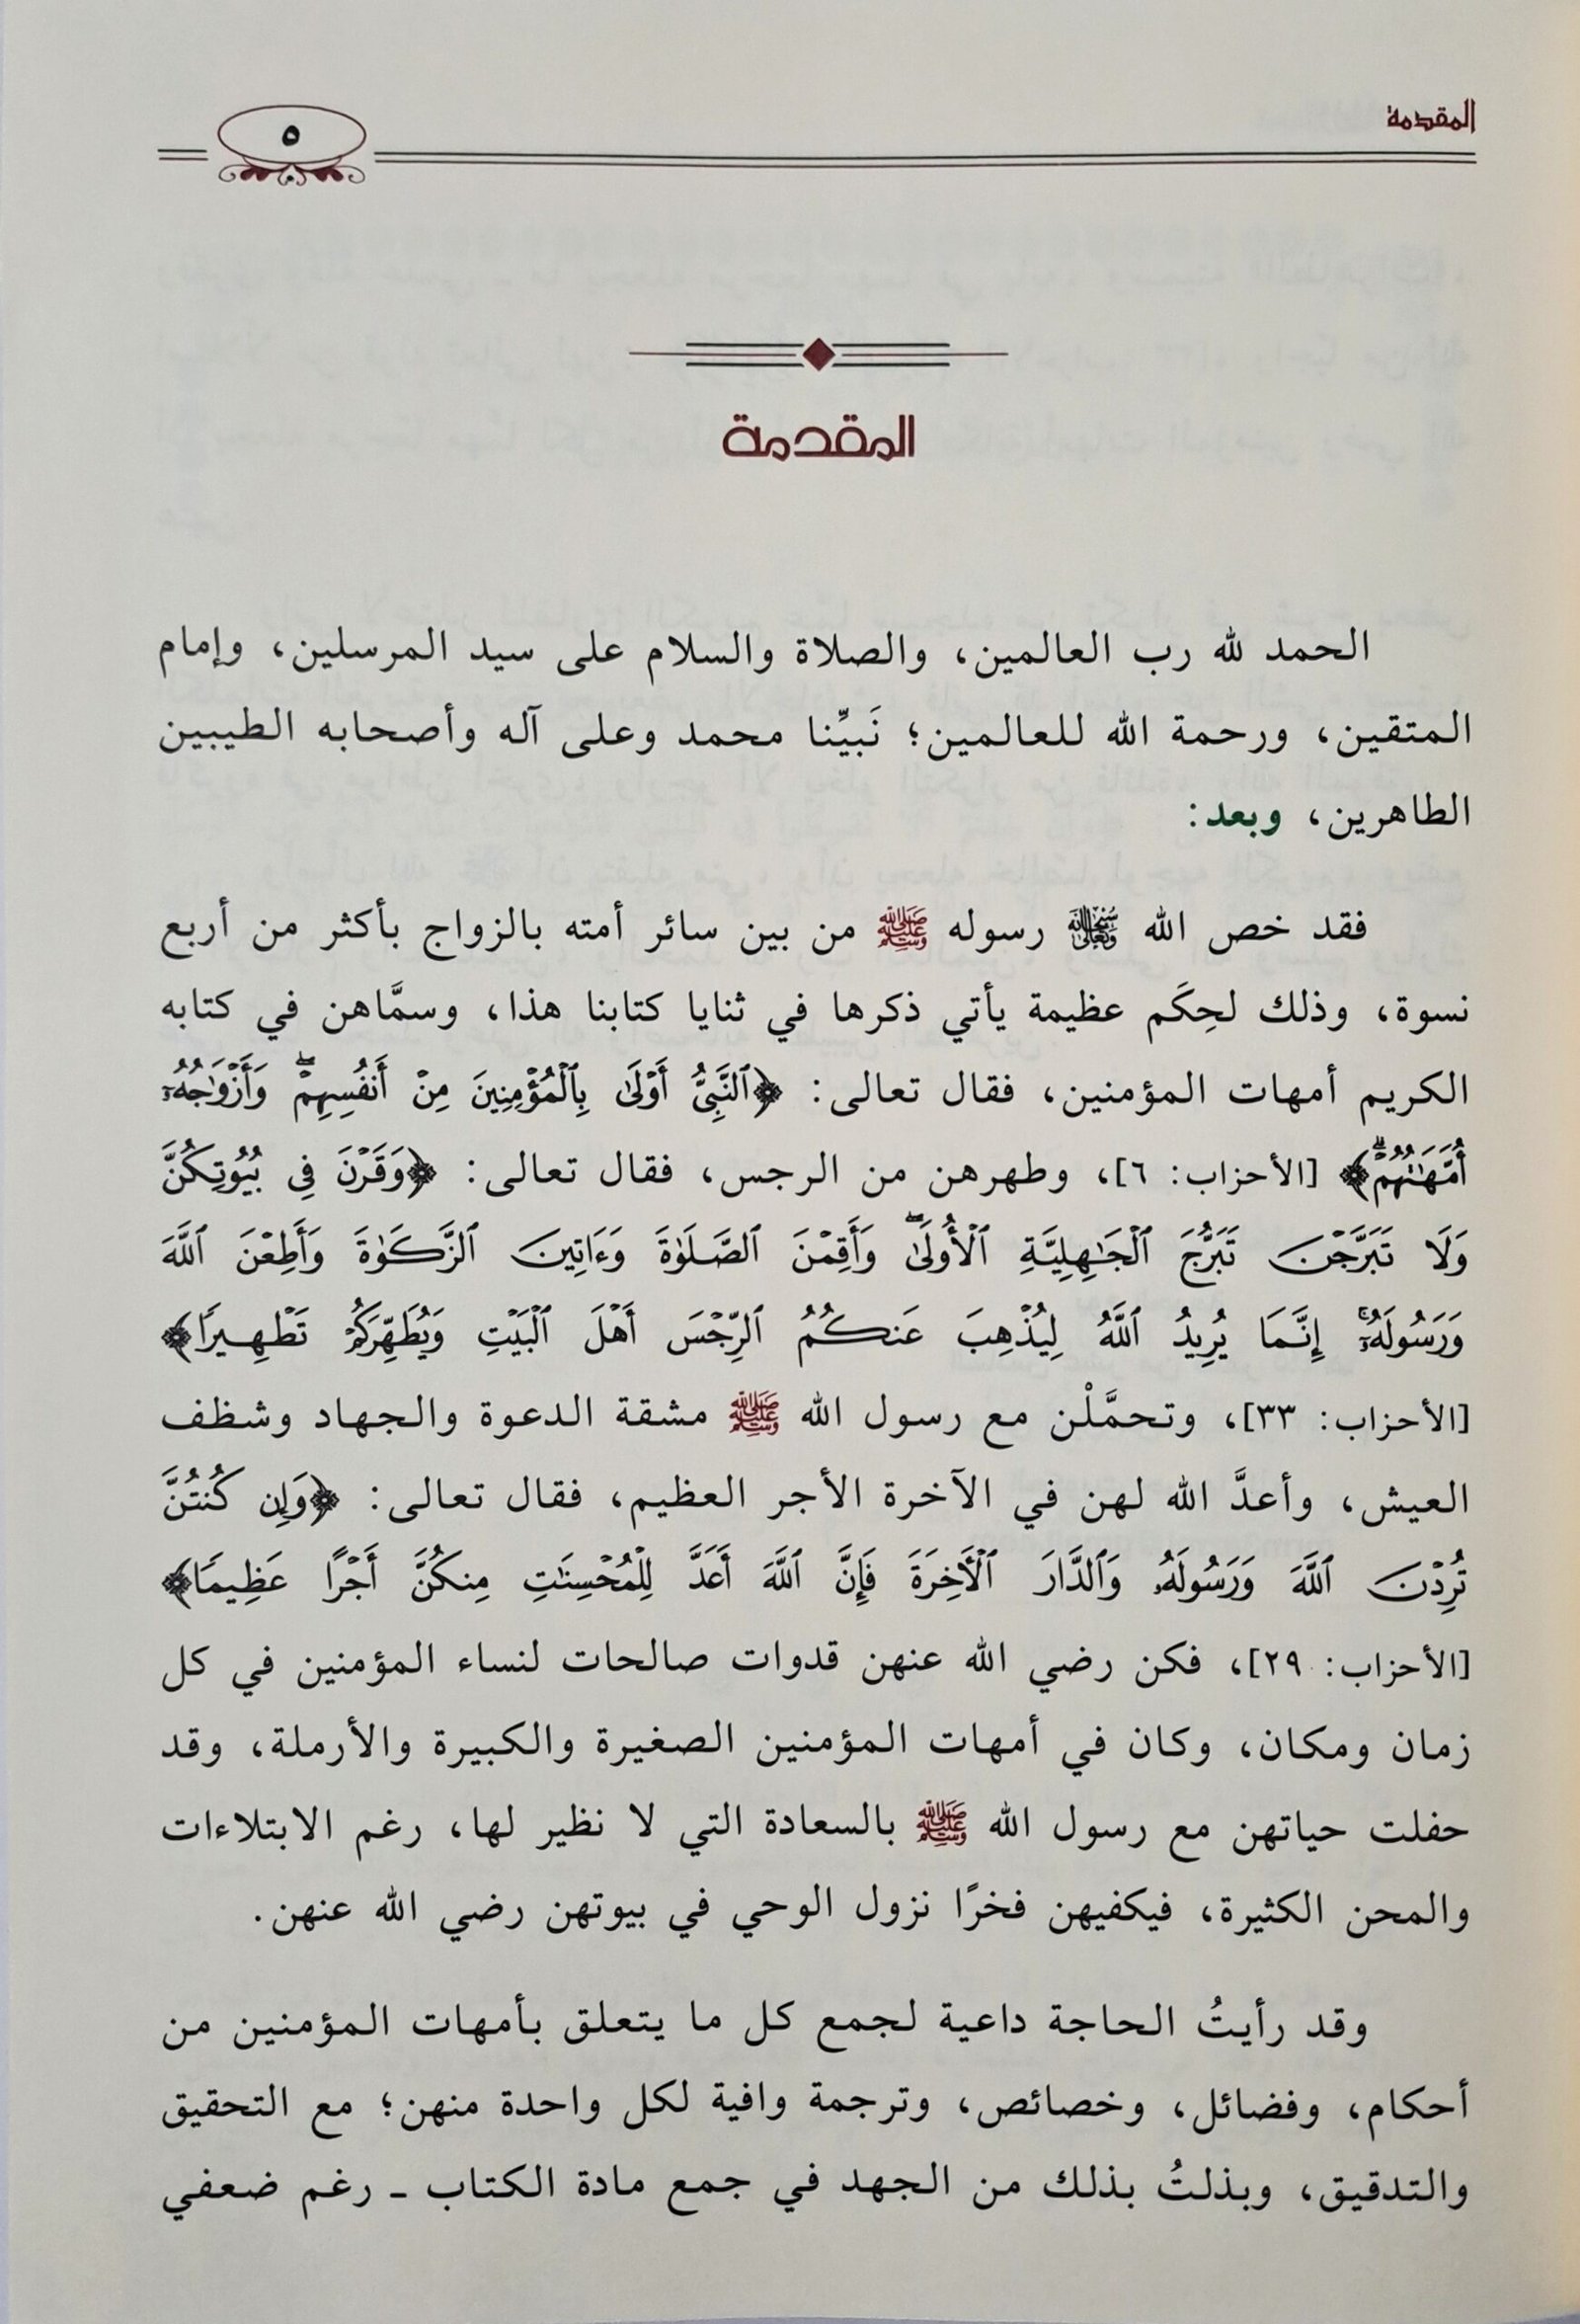 المقدمة
٥
المقدمة
الحمد لله رب العالمين، والصلاة والسلام على سيد المرسلين، وإمام
المتقين، ورحمة الله للعالمين؛ نَبيِّنا محمد وعلى آله وأصحابه الطيبين
الطاهرين، وبعد:
فقد خص الله سبحانه وتعالى رسوله ﷺ من بين سائر أمته بالزواج بأكثر من أربع
نسوة، وذلك لحِكَم عظيمة يأتي ذكرها في ثنايا كتابنا هذا، وسمَّاهن في كتابه
الكريم أمهات المؤمنين، فقال تعالى: ﴿ٱلنَّبِيُّ أَوۡلَىٰ بِٱلۡمُؤۡمِنِينَ مِنۡ أَنفُسِهِمۡۖ وَأَزۡوَٰجُهُۥٓ
أُمَّهَٰتُهُمۡۗ﴾ [الأحزاب: ٦]، وطهرهن من الرجس، فقال تعالى: ﴿وَقَرۡنَ فِي بُيُوتِكُنَّ
وَلَا تَبَرَّجۡنَ تَبَرُّجَ ٱلۡجَٰهِلِيَّةِ ٱلۡأُولَىٰۖ وَأَقِمۡنَ ٱلصَّلَوٰةَ وَءَاتِينَ ٱلزَّكَوٰةَ وَأَطِعۡنَ ٱللَّهَ
وَرَسُولَهُۥٓۚ إِنَّمَا يُرِيدُ ٱللَّهُ لِيُذۡهِبَ عَنكُمُ ٱلرِّجۡسَ أَهۡلَ ٱلۡبَيۡتِ وَيُطَهِّرَكُمۡ تَطۡهِيرٗا﴾
[الأحزاب: ٣٣]، وتحمَّلْن مع رسول الله ﷺ مشقة الدعوة والجهاد وشظف
العيش، وأعدَّ الله لهن في الآخرة الأجر العظيم، فقال تعالى: ﴿وَإِن كُنتُنَّ
تُرِدۡنَ ٱللَّهَ وَرَسُولَهُۥ وَٱلدَّارَ ٱلۡأٓخِرَةَ فَإِنَّ ٱللَّهَ أَعَدَّ لِلۡمُحۡسِنَٰتِ مِنكُنَّ أَجۡرًا عَظِيمٗا﴾
[الأحزاب: ٢٩]، فكن رضي الله عنهن قدوات صالحات لنساء المؤمنين في كل
زمان ومكان، وكان في أمهات المؤمنين الصغيرة والكبيرة والأرملة، وقد
حفلت حياتهن مع رسول الله ﷺ بالسعادة التي لا نظير لها، رغم الابتلاءات
والمحن الكثيرة، فيكفيهن فخرًا نزول الوحي في بيوتهن رضي الله عنهن.
وقد رأيتُ الحاجة داعية لجمع كل ما يتعلق بأمهات المؤمنين من
أحكام، وفضائل، وخصائص، وترجمة وافية لكل واحدة منهن؛ مع التحقيق
والتدقيق، وبذلتُ بذلك من الجهد في جمع مادة الكتاب ـ رغم ضعفي